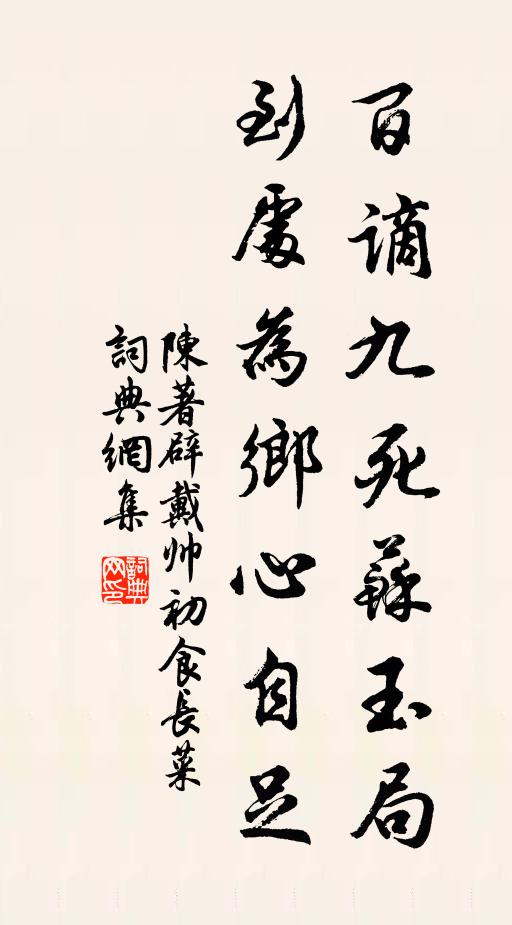 百謫九死蘇玉局
到處為鄉心自足
陳著辟戴帅初食長菜
詞典網集
詞典网印